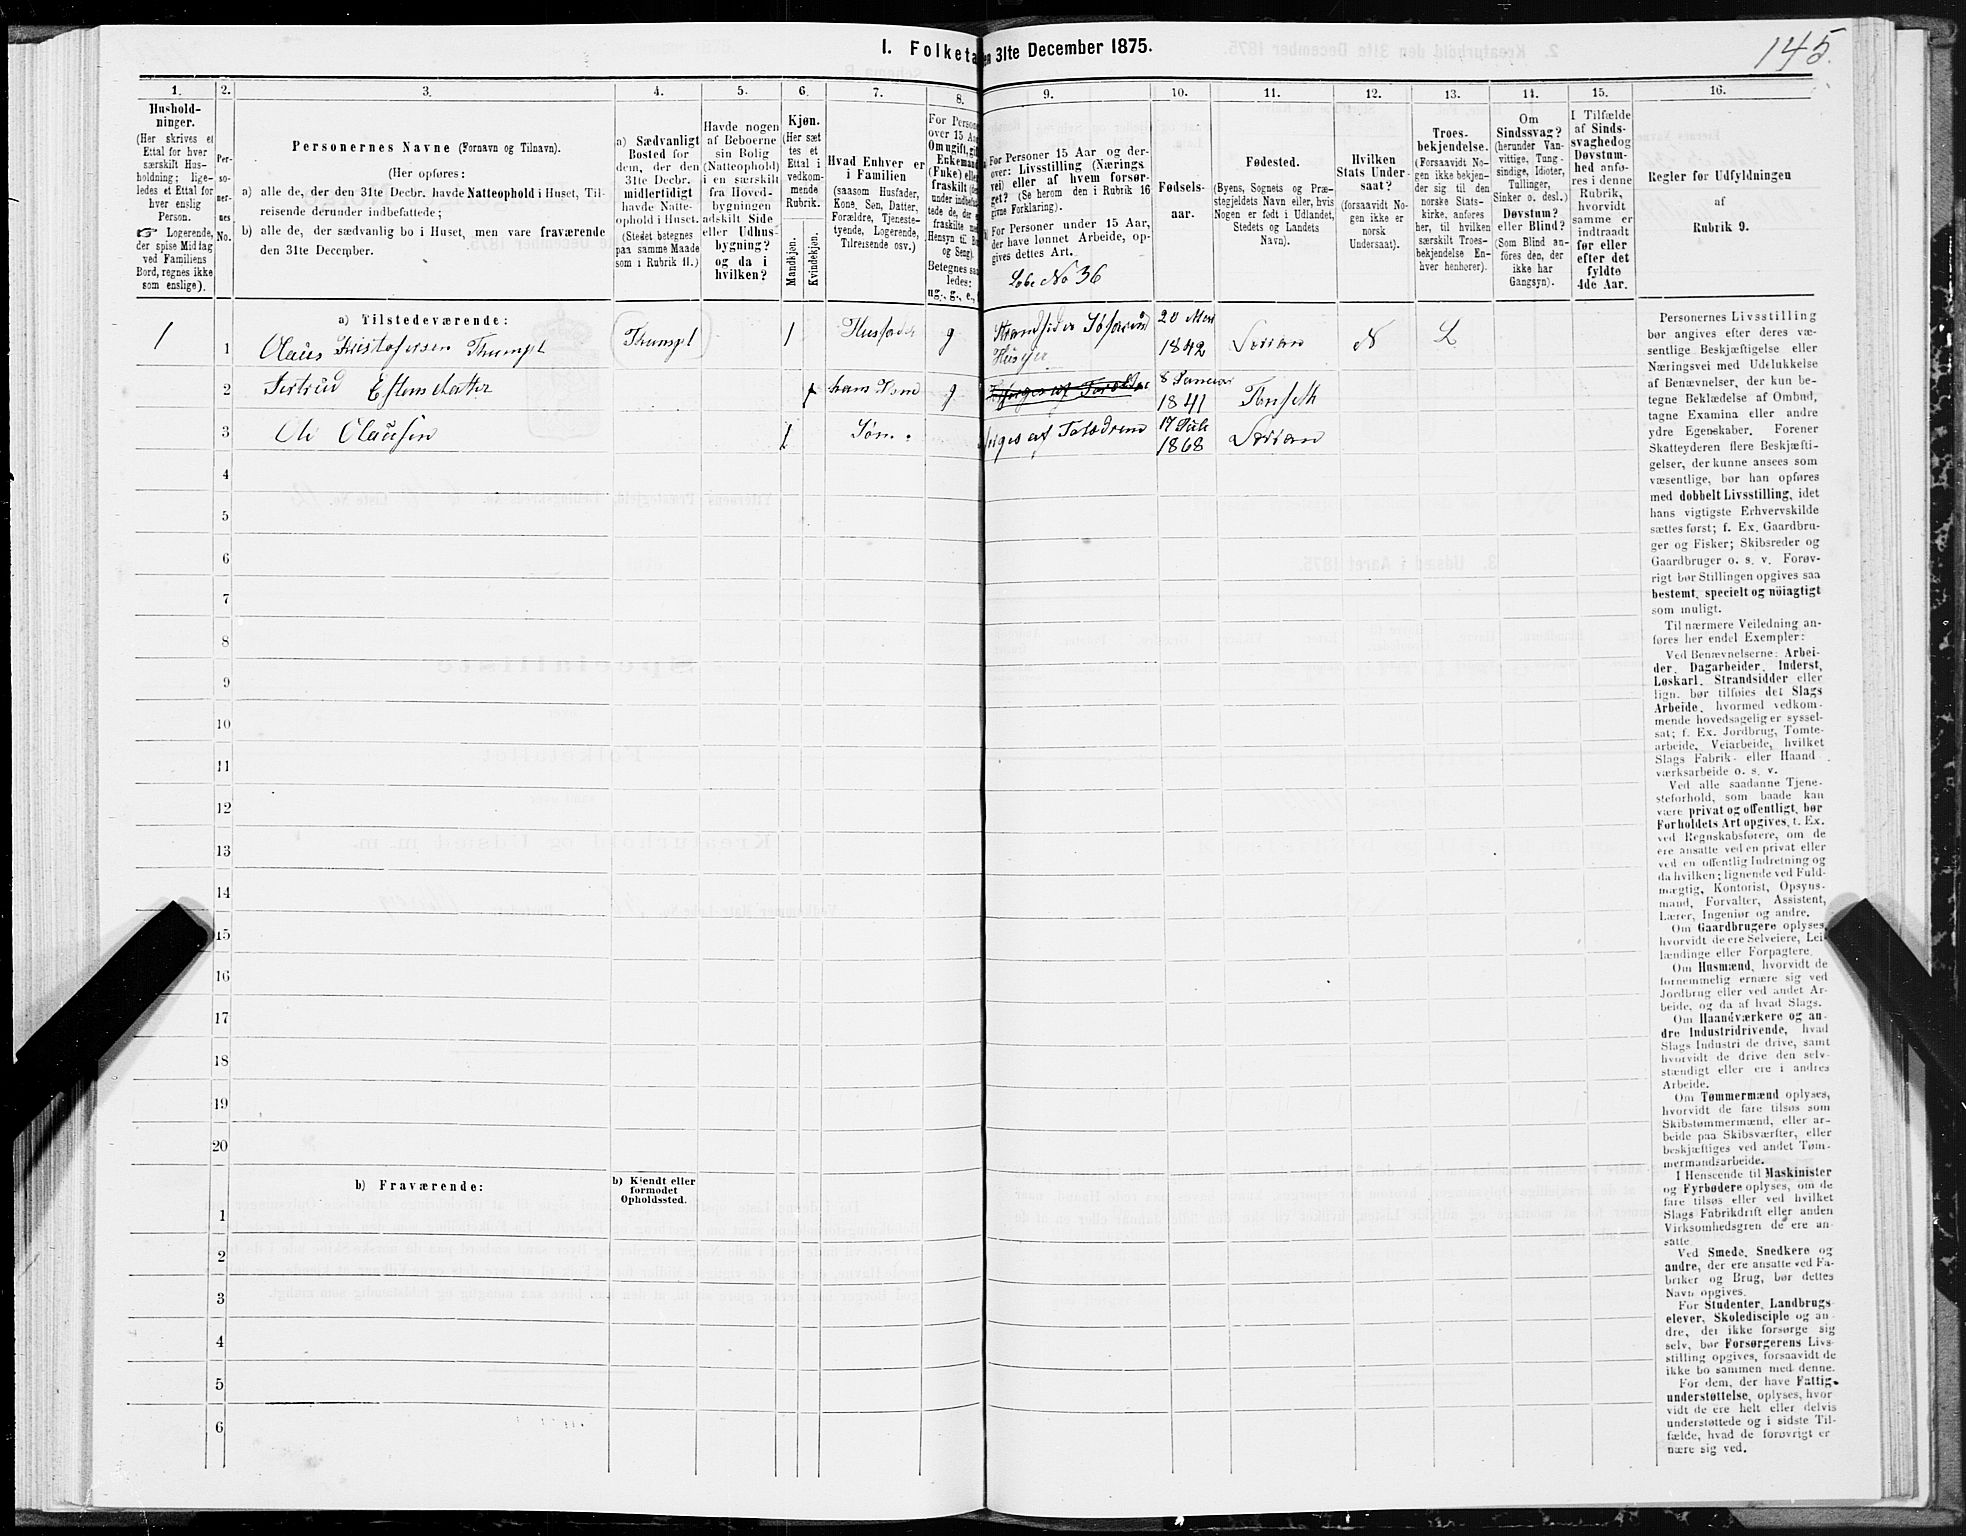 145.
I. Folketa en 31te December 1875.
1.
Hushold-
ninger.
(Her skrives et
Ettal for hver
særskilt Hus-
holdning; lige-
ledes et Ettal for
hver enslig
Person.
☞ Logerende,
der spise Middag
ved Familiens
Bord, regnes ikke
som enslige).
2.
Per-
so-
ner-
nes
No.
3.
Personernes Navne (Fornavn og Tilnavn).
(Her opføres:
a) alle de, der den 31te Decbr. havde Natteophold i Huset, Til-
reisende derunder indbefattede;
b) alle de, der sædvanlig bo i Huset, men vare fraværende
den 31te December.
4.
a) Sædvanligt
Bosted for
dem, der den
31te Decbr.
midlertidigt
havde Natte-
ophold i Huset.
(Stedet betegnes
paa samme Maade
som i Rubrik 11.)
5.
Havde nogen
af Beboerne
sin Bolig
(Natteophold)
i en særskilt
fra Hoved-
bygningen
adskilt Side-
eller Udhus-
bygning?
og da i
hvilken?
6.
Kjøn.
(Her sæt-
tes et
Ettal i
vedkom-
mende
Rubrik.
Mandkjøn.
Kvindekjøn.
7.
Hvad Enhver er
i Familien
(saasom Husfader,
Kone, Søn, Datter,
Forældre, Tjeneste-
tyende, Logerende,
Tilreisende osv.)
8.
For Persone
over 15 Aa
Om ugift, gif
Enkemand
(Enke) elle
fraskilt (de
under indbefat
tede de, der
fraskilte me
Hensyn til Bo
og Seng).
Betegnes saa
ledes:
ug., g., e.,
9.
For Personer 15 Aar og der-
over: Livsstilling (Nærings-
vei) eller af hvem forsør-
get? (Se herom den i Rubrik 16
givne Forklaring).
For Personer under 15 Aar,
der have lønnet Arbeide, op-
gives dettes Art.
Løbe No 36
10.
Fødsels-
aar.
11.
Fødested.
(Byens, Sognets og Præ-
stegjeldets Navn eller, hvis
Nogen er født i Udlandet,
Stedets og Landets
Navn).
12.
Hvilken
Stats Under-
saat?
(forsaavidt No-
gen ikke er
norsk
Undersaat).
13.
Troes-
bekjendelse.
(Forsaavidt No-
gen ikke bekjen-
der sig til den
norske Stats-
kirke, anføres
her, til hvilken
særskilt Troes-
bekjendelse En-
hver henhører).
14.
Om
Sindssvag?
(herunder Van-
vittige, Tung-
sindige, Idioter,
Tullinger,
Sinker o. desl.)
Døvstum?
eller Blind?
(Som Blind an-
føres den, der
ikke har
Gangsyn).
15.
I Tilfælde
af Sinds-
svaghed og
Døvstum-
hed anfø-
res i denne
Rubrik,
hvorvidt
samme er
indtraadt
før eller
efter det
fyldte
4de Aar.
16.
Regler for Udfyldningen
af
Rubrik 9.
a) Tilstedeværende:
1
1 Olaus Kristofersen Thumpl Thumpl 1 Husfader g Strandsider 20 1842 N L
Huseier
2 Estensdatter hans Kone g 8 Januar 1841 Tønseth
3 Ole Olausen 1 Søn 17 Juli 1868
4
5
6
7
8
9
10
11
12
13
14
15
16
17
18
19
20
b) Fraværende:
b) Kjendt eller
formodet
Opholdssted.
1
2
3
4
5
6
Personernes Livsstilling
bør angives efter deres væ-
sentlige Beskjæftigelse eller
Næringsvei med Udelukkelse
af Benævnelser, der kun be-
tegne Beklædelse af Ombud,
tagne Examina eller andre
ydre Egenskaber. Forener
Skatteyderen flere Beskjæfti-
gelser, der kunne ansees som
væsentlige, bør han opføres
med dobbelt Livsstilling, idet
hans vigtigste Erhvervskilde
sættes først; f. Ex. Gaardbru-
ger og Fisker; Skibsreder og
Gaardbruger o. s. v. Forøv-
rigt bør Stillingen opgives saa
bestemt, specielt og nöiagtigt
som muligt.
Til nærmere Veiledning an-
føres her endel Exempler:
Ved Benævnelserne: Arbei-
der, Dagarbeider, Inderst,
Løskarl, Strandsidder eller
lign. bør tilføies det Slags
Arbeide, hvormed vedkom-
mende hovedsagelig er syssel-
sat; f. Ex. Jordbrug, Tomte-
arbeide, Veiarbeide, hvilket
Slags Fabrik- eller Haand-
værksarbeide o. s. v.
Ved alle saadanne Tjene-
steforhold, som baade kan
være privat og offentligt, bør
Forholdets Art opgives, t. Ex.
ved Regnskabsførere, om de
ere ansatte ved en privat eller
ved en offentlig Indretning og
da hvilken; lignende ved Fuld-
mægtig, Kontorist, Opsyns-
mand, Forvalter, Assistent,
Lærer, Ingeniør og andre.
Om Gaardbrugere oplyses,
hvorvidt de ere Selveiere, Lei-
lændinge eller Forpagtere.
Om Husmænd, hvorvidt de
fornemmelig ernære sig ved
Jordbrug eller ved andet Ar-
beide, og da af hvad Slags.
Om Haandværkere og an-
dre Industridrivende, hvad
Slags Industri de drive, samt
hvorvidt de drive den selv-
stændigt eller ere i andres
Arbeide.
Om Tømmermænd oplyses,
hvorvidt de fare tilsøs som
Skibstømmermænd, eller ar-
beide paa Skibsværfter, eller
beskjæftiges ved andet Tøm-
mermandsarbeide.
I Henseende til Maskinister
og Fyrbødere oplyses, om de
fare tilsøs eller ved hvilket
Slags Fabrikdrift eller anden
Virksomhedsgren de ere an-
satte.
Ved Smede, Snedkere og
andre, der ere ansatte ved Fa-
briker og Brug, bør dettes
Navn opgives.
For Studenter, Landbrugs-
elever, Skoledisciple og an-
dre, der ikke forsørge sig
selv, bør Forsørgerens Livs-
stilling opgives, forsaavidt de
ikke bo sammen med denne.
For dem, der have Fattig-
understøttelse, oplyses, hvor-
vidt de ere helt eller delvis
understøttede og i sidste Til-
fælde, hvad de forøvrigt er-
nære sig ved.